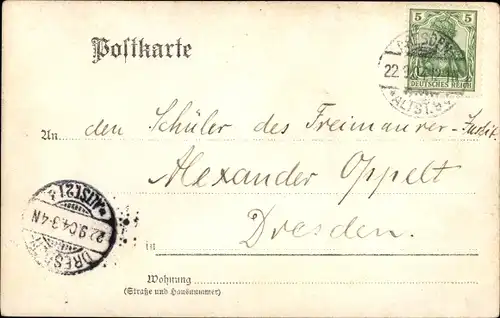 Postkarte
5 5
DEUTSCHES REICH
DRESDEN
22.9.04
*ALTST.
An den Schüler des Freimaurer-Instit.
Alexander Oppelt
in Dresden.
Wohnung
(Straße und Hausnummer)
DRESDEN
22.9.04.3-4N
*ALTST.